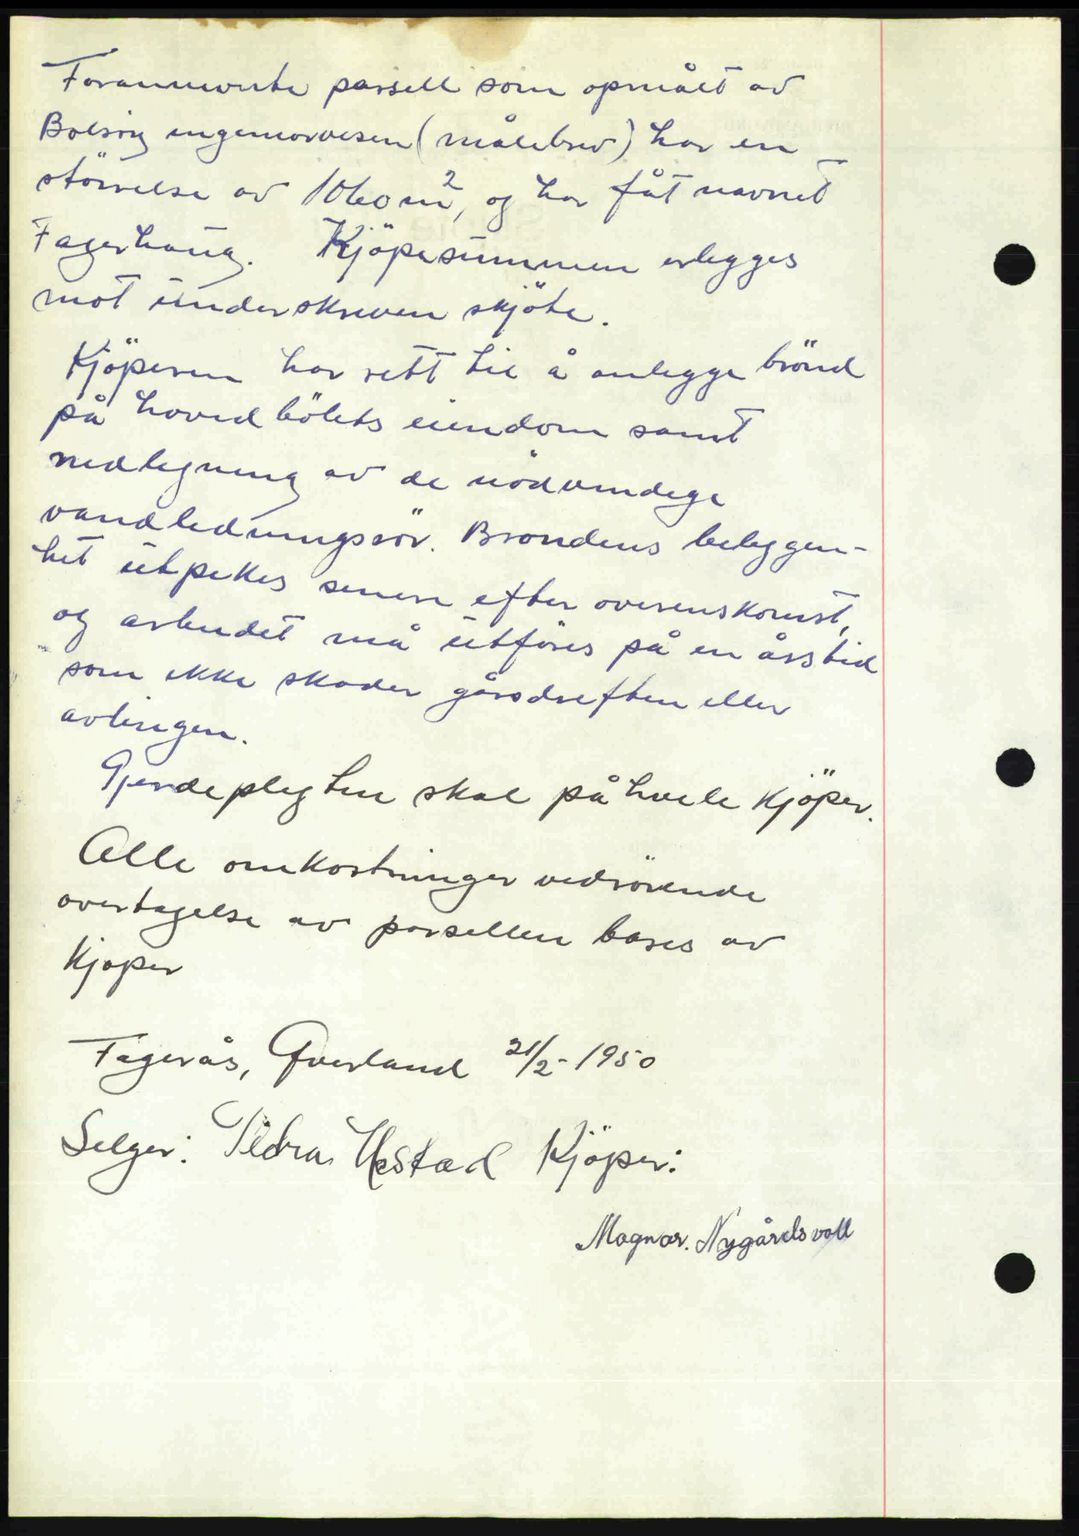 Forannevnte parsell som opmålt av
Bolsöy ingeniörvesen (målebrev) har en
störrelse av 1060 m², og har fåt navnet
Fagerhaug. Kjöpesummen erlegges
mot underskreven skjöte.
Kjöperen har rett til å anlegge brönd
på hovedbölets eiendom samt
nedlegning av de nödvendige
vandledningsrör. Bröndens beliggen-
het utpekes senere efter overenskomst,
og arbeidet må utföres på en årstid
som ikke skader gårsdriften eller
avlingen.
Gjerdeplegten skal påhvile Kjöper.
Alle omkostninger vedrörende
overtagelse av parsellen bæres av
Kjöper
Fagerås, Qverland 21/2-1950
Selger: Hestad Kjöper:
Magnar. Nygårdsvoll